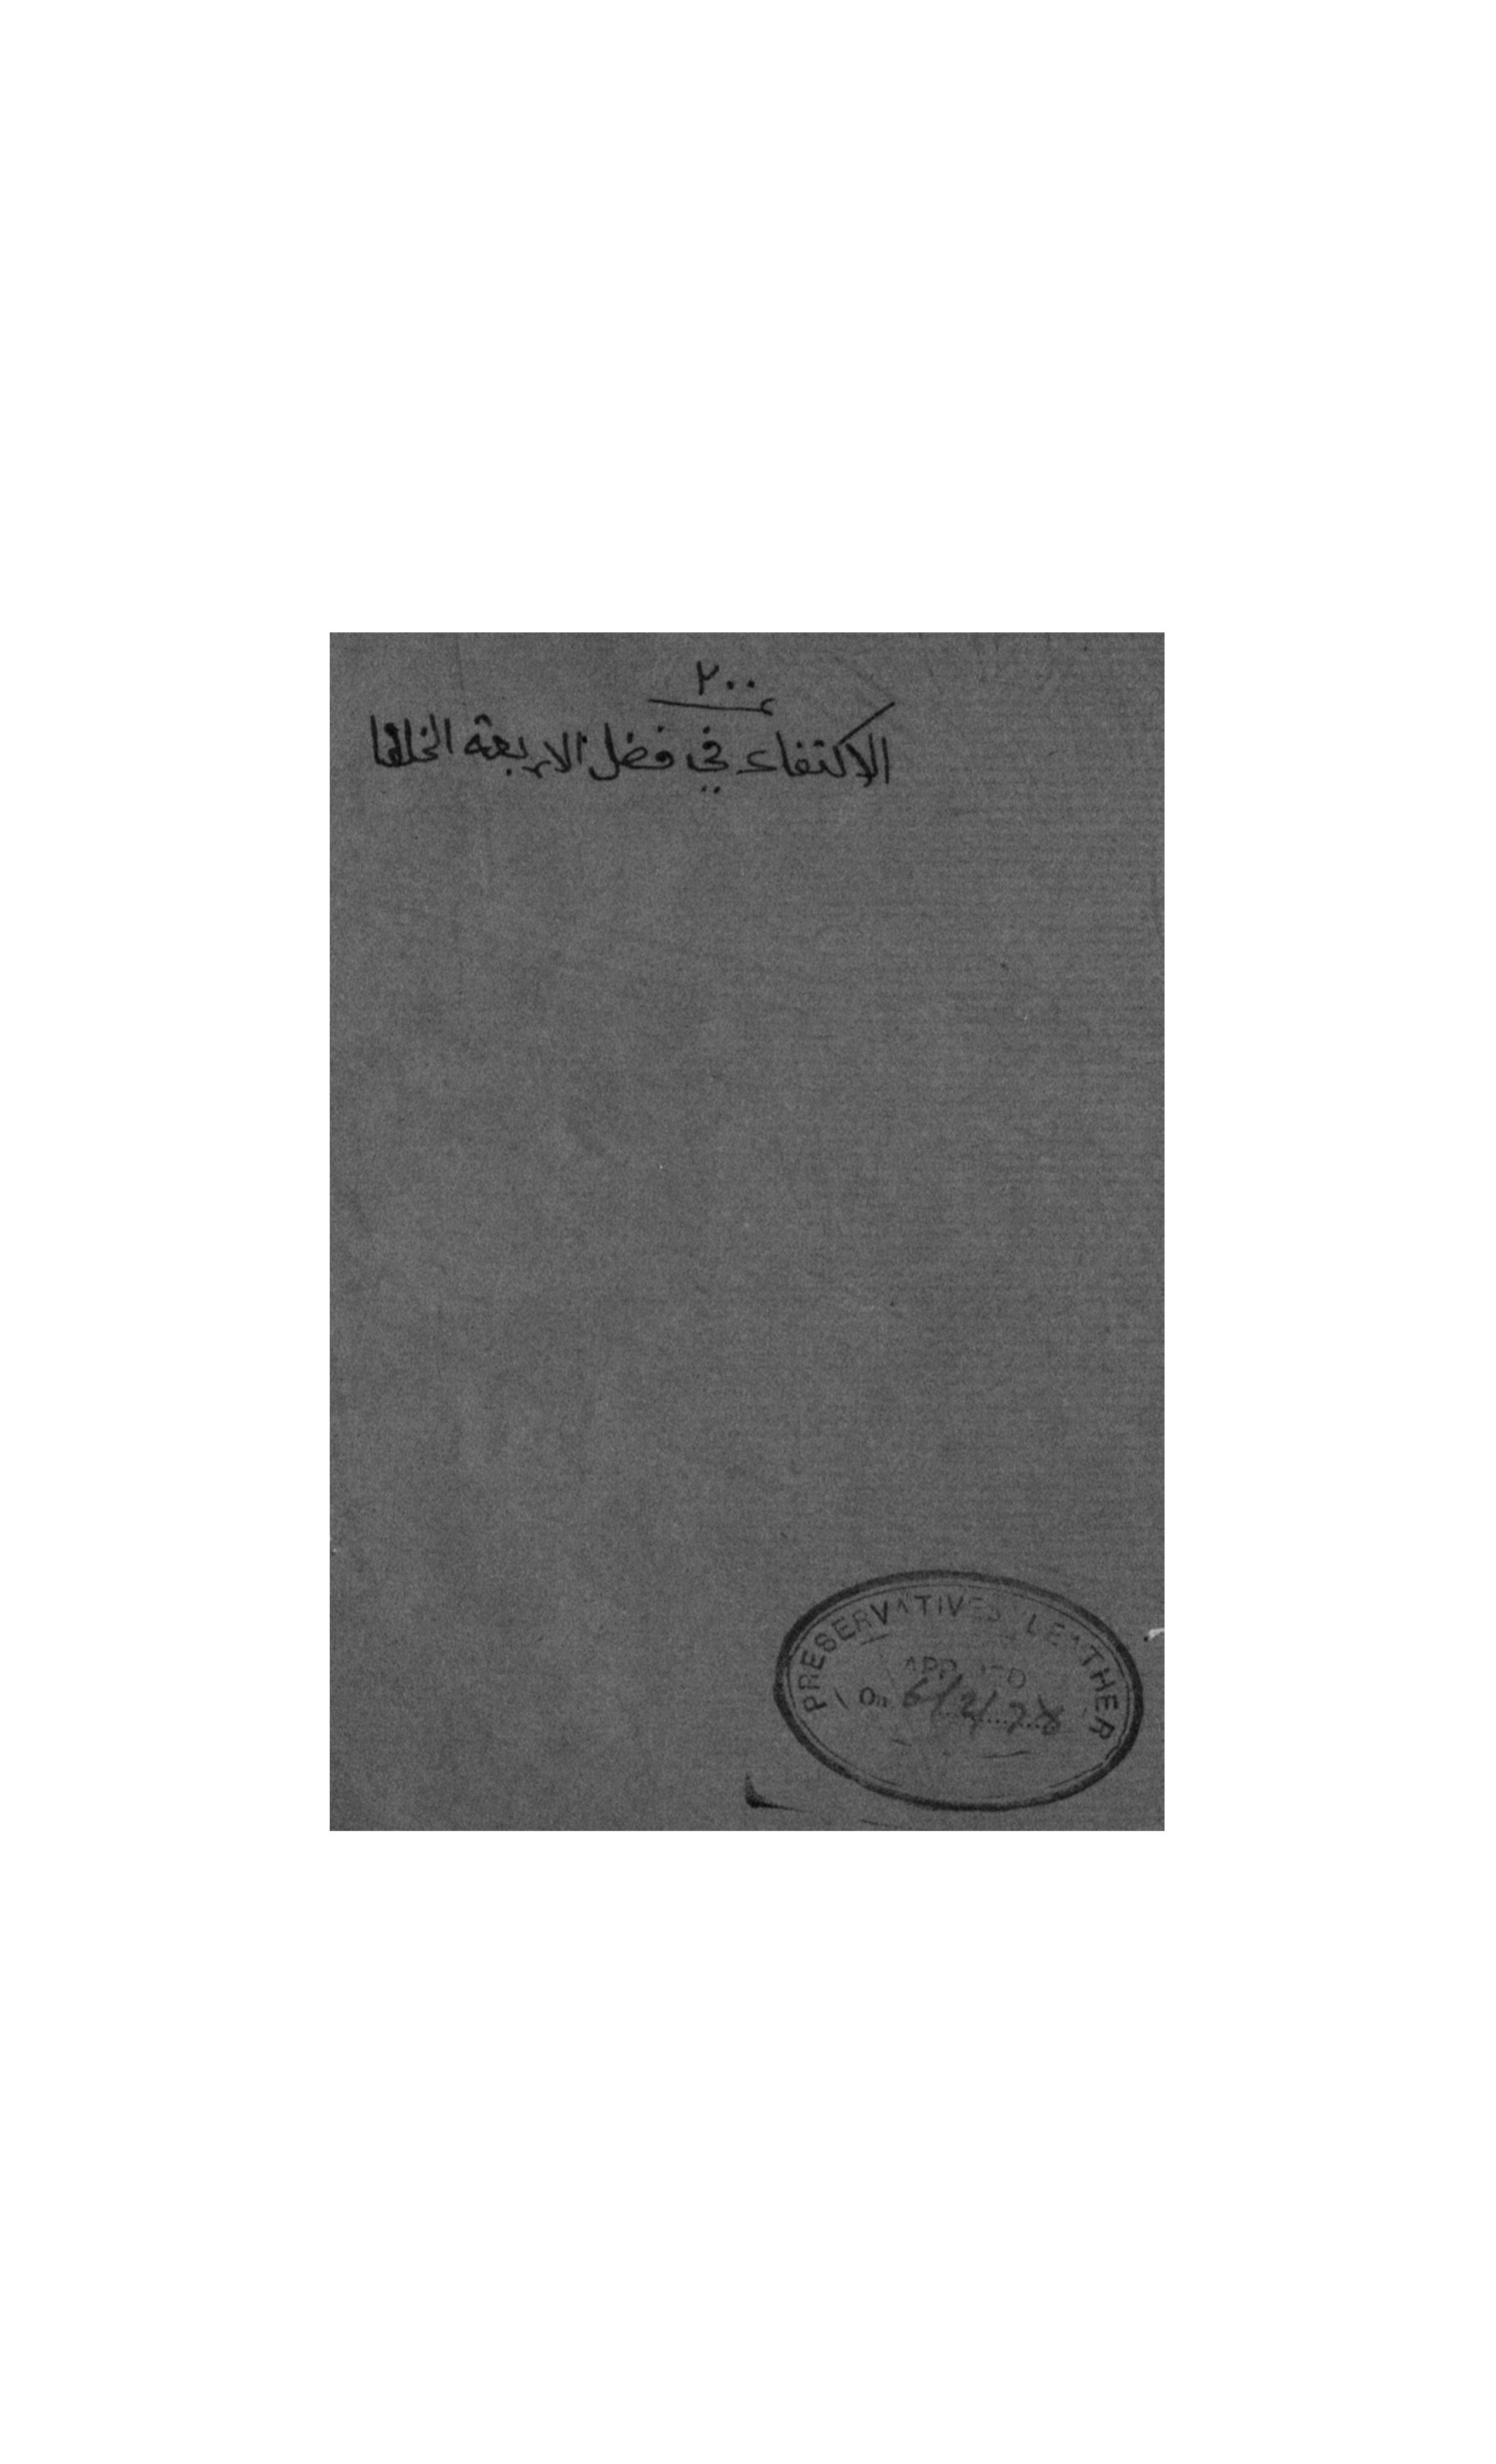 ٢٠٠
الاكتفاء في فضل الاربعة الخلفا
PRESERVATIVES LEATHER
APPLIED
On 6/2/78